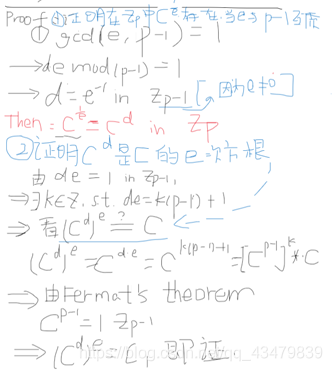 Proof ①证明在Zp中C^{1/e}存在,当e与p-1互质
① gcd(e, p-1) = 1
→ de mod(p-1) = 1
→ d = e^{-1} in Zp-1 [因为e≠0]
Then: C^{1/e} = C^d in Zp
②证明C^d是C的e次方根
由 de = 1 in Zp-1,
⇒ ∃k∈Z, st. de=k(p-1)+1
⇒ 看(C^d)^e ≟ C
(C^d)^e = C^{d·e} = C^{k(p-1)+1} = [C^{p-1}]^k * C
⇒ 由Fermat's theorem
C^{p-1} = 1 Zp-1
⇒ (C^d)^e = Cp 即证
https://blog.csdn.net/qq_43479839